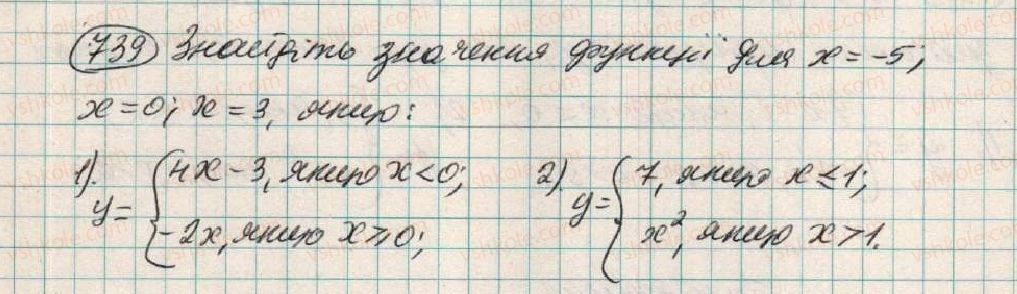 739 Знайдіть значення функції для x = -5;
x = 0; x = 3, якщо:
1). y = { 4x - 3, якщо x < 0; 2). y = { 7, якщо x ≤ 1;
-2x, якщо x ⩾ 0; x², якщо x > 1.